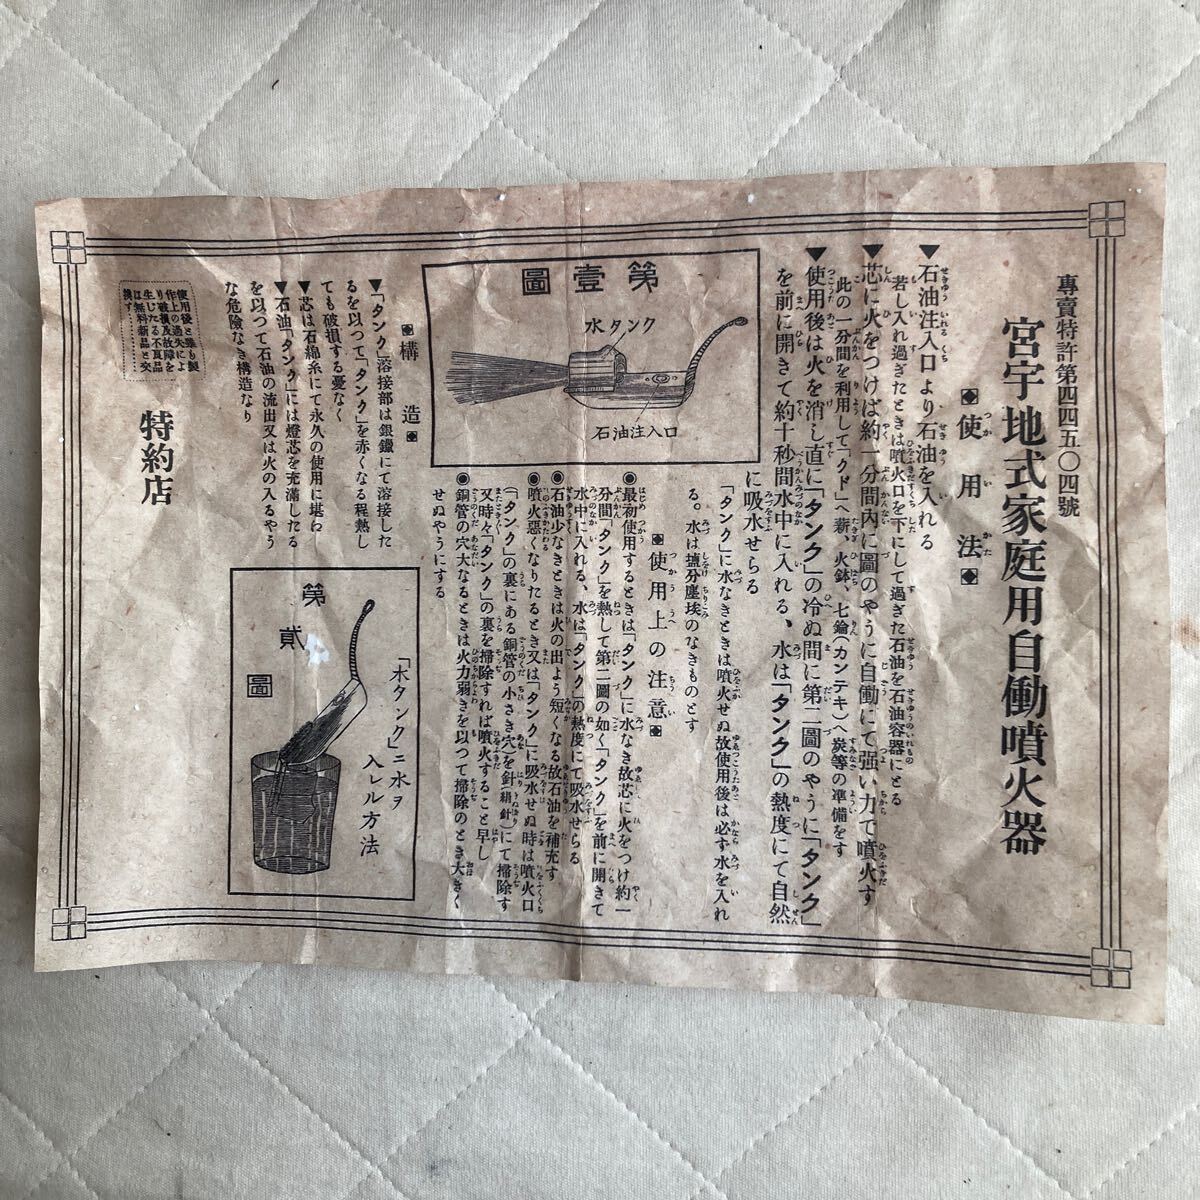 專賣特許第四四五〇四號
宮宇地式家庭用自働噴火器
使用法
▼石油注入口より石油を入れる
若し入れ過ぎたときは噴火口を下にして過ぎた石油を石油容器にとる
▼芯に火をつけば約一分間內に圖のやうに自働にて强い力で噴火す
此の一分間を利用して「クド」へ薪、火鉢、七錀(カンテキ)へ炭等の準備をす
▼使用後は火を消し直に「タンク」の冷ぬ間に第二圖のやうに「タンク」
を前に開きて約十秒間水中に入れる、水は「タンク」の熱度にて自然
に吸水せらる
「タンク」に水なきときは噴火せぬ故使用後は必ず水を入れ
る。水は塩分塵埃のなきものとす
第壹圖
水タンク
石油注入口
使用上の注意
●最初使用するときは「タンク」に水なき故芯に火をつけ約一
分間「タンク」を熱して第二圖の如く「タンク」を前に開きて
水中に入れる、水は「タンク」の熱度にて吸水せらる
●石油少なきときは火の出よう短くなる故石油を補充す
●噴火惡くなりたるとき又は「タンク」に吸水せぬ時は噴火口
(「タンク」の裏にある銅管の小さき穴)を針(絹針)にて掃除す
又時々「タンク」の裏を掃除すれば噴火すること早し
●銅管の穴大なるときは火力弱きを以つて掃除のとき大きく
せぬやうにする
構造
▼「タンク」溶接部は銀鑞にて溶接した
るを以つて「タンク」を赤くなる程熱し
ても破損する憂なく
▼芯は石綿糸にて永久の使用に堪わ
▼石油「タンク」には燈芯を充滿したる
を以つて石油の流出又は火の入るやう
な危險なき構造なり
第貳圖
「水タンク」ニ水ヲ
入レル方法
使用後と雖も製
作上の過失によ
り破損及故障を
生じたる不良品
は無料新品と交
換す
特約店